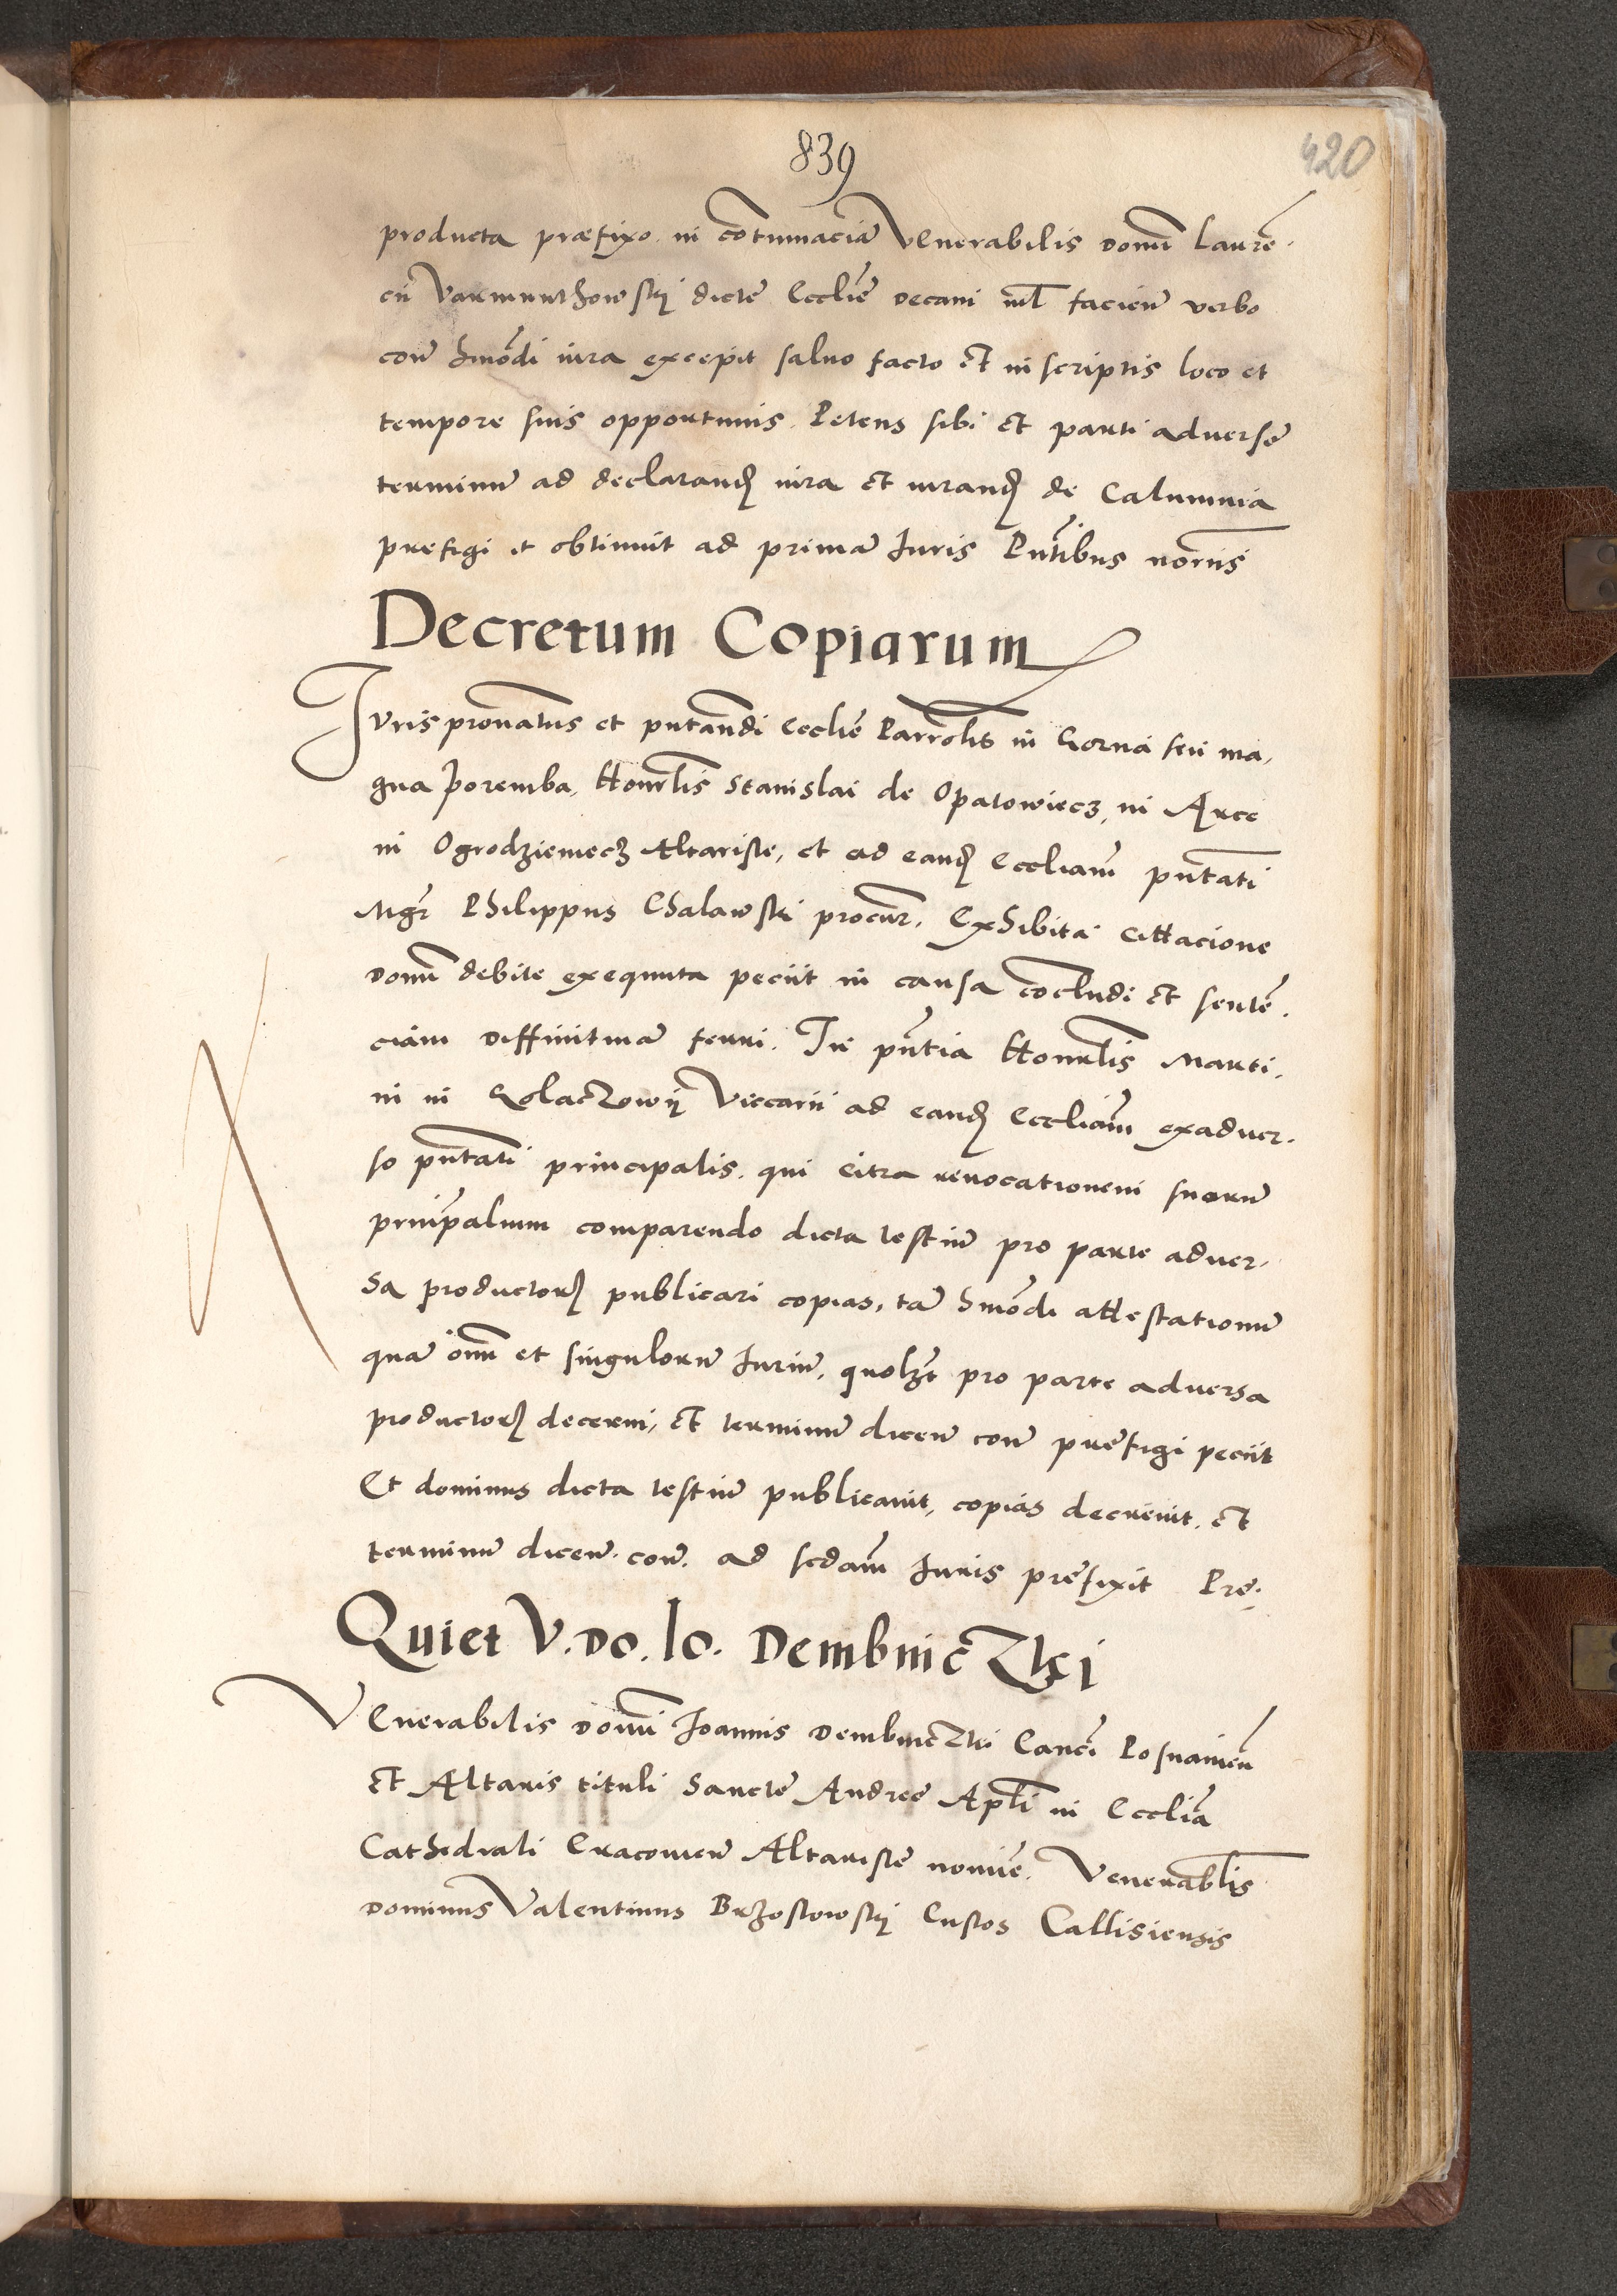 839
420
producta præfixo. in cōtumaciā Venerabilis domī Laurē-
cii Varmunthowskij dictę Ecclię decani nil facieñ verbo
coñ hmōdi iura excepit saluo facto et in scriptis loco et
tempore suis opportunis. Petens sibi et parti aduersę
terminū ad declarand iura et iurand de Calumnia
prefigi et obtinuit ad primā Iuris Pñtibus notariis
Decretum Copiarum
Iuris pronatus et pñtandi Ecclię Parrolis in Gorna seu ma-
gna Poremba, Honorlis Stanislai de Opatowiecz, in Arce
in Ogrodziemecz Altariste, et ad eand Eccliam pñtati
Mgr Philippus Chalawski procur. Exhibita cittacione
domī debite exequuta peciit in causa cōcludi et sentē-
ciam diffinitiuā ferri. In pñtia Honorlis Marti-
ni in Qolaczowij Viccarii ad eand Eccliam exaduer-
so pñtati principalis. qui citra reuocationem suorū
principalium comparendo dicta testiū pro parte aduer-
sa productor publicari copias, tā hmōdi attestationū
quā oīm et singulorū Iuriū, quolzt pro parte aduersa
productor decerni, et terminū diceñ coñ prefigi peciit
Et dominus dicta testiū publicauit, copias decreuit, et
terminū diceñ. coñ. ad scdam Iuris prefixit Prę.
Quiet V. Do. Io. Dembniczki
Venerabilis domī Ioannis Dembniczki Canci Posnanień
et Altaris tituli Sanctę Andreę Apli in Ecclia
Cathedrali Cracouień Altaristę nomine. Venerablis
dominus Valentinus Brzostowskij Custos Callisiensis